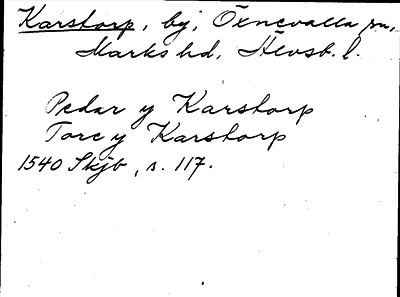 Karstorp, by, Öxnevalla sn,
Marks hd, Älvsb. l.
Pedar y Karstorp
Tore y Karstorp
1540 Skjb, s. 117.